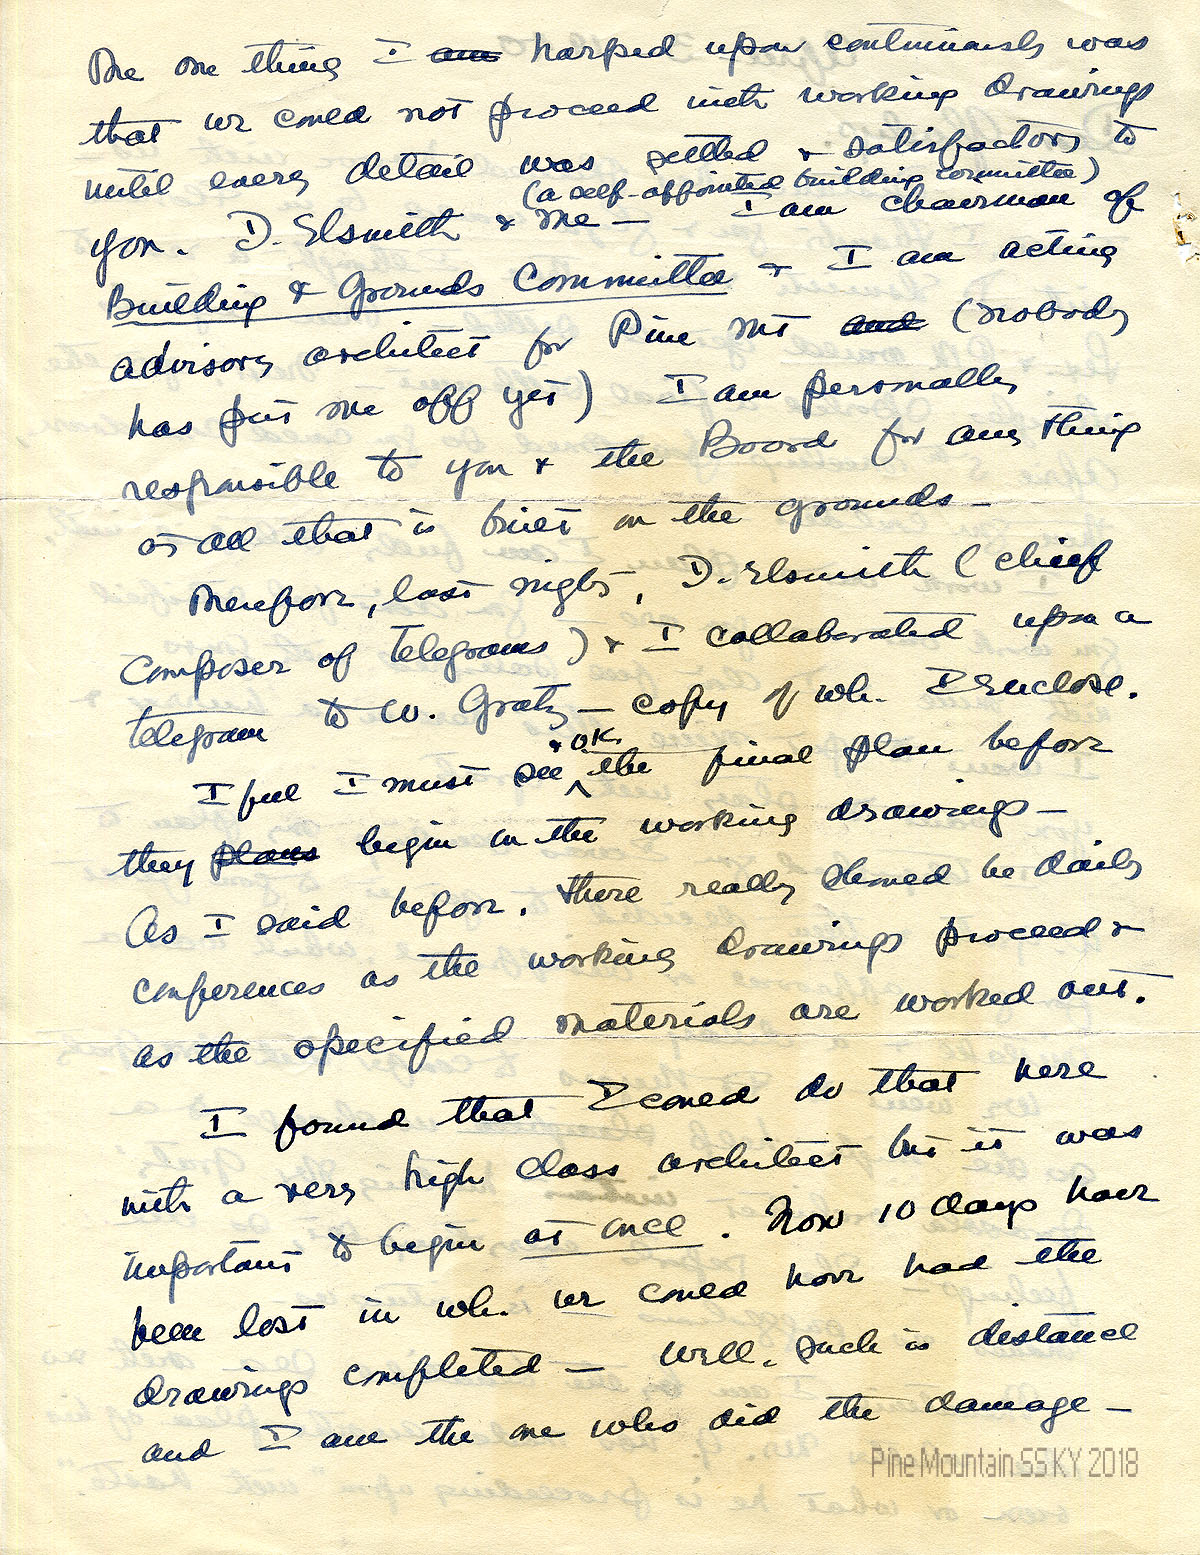 The one thing I am harped upon continuously was
that we could not proceed with working drawings
until every detail was settled & satisfactory to
(a self-appointed building committee)
you. D. Elsmith & me — I am chairman of
Building & Grounds Committee & I am acting
advisory architect for Pine Mt and (nobody
has put me off yet) I am personally
responsible to you & the Board for any thing
or all that is built on the grounds —
Therefore, last night, D. Elsmith (chief
composer of telegrams) & I collaborated upon a
telegram to W. Gratz — copy of wh. I enclose.
& OK.
I feel I must see the final plan before
they plans begin on the working drawings —
As I said before. There really should be daily
conferences as the working drawings proceed &
as the specified materials are worked out.
I found that I could do that here
with a very high class architect but it was
important to begin at once. Now 10 days have
been lost in wh. we could have had the
drawings completed — Well, such is distance
and I am the one who did the damage —
Pine Mountain SS KY 2018